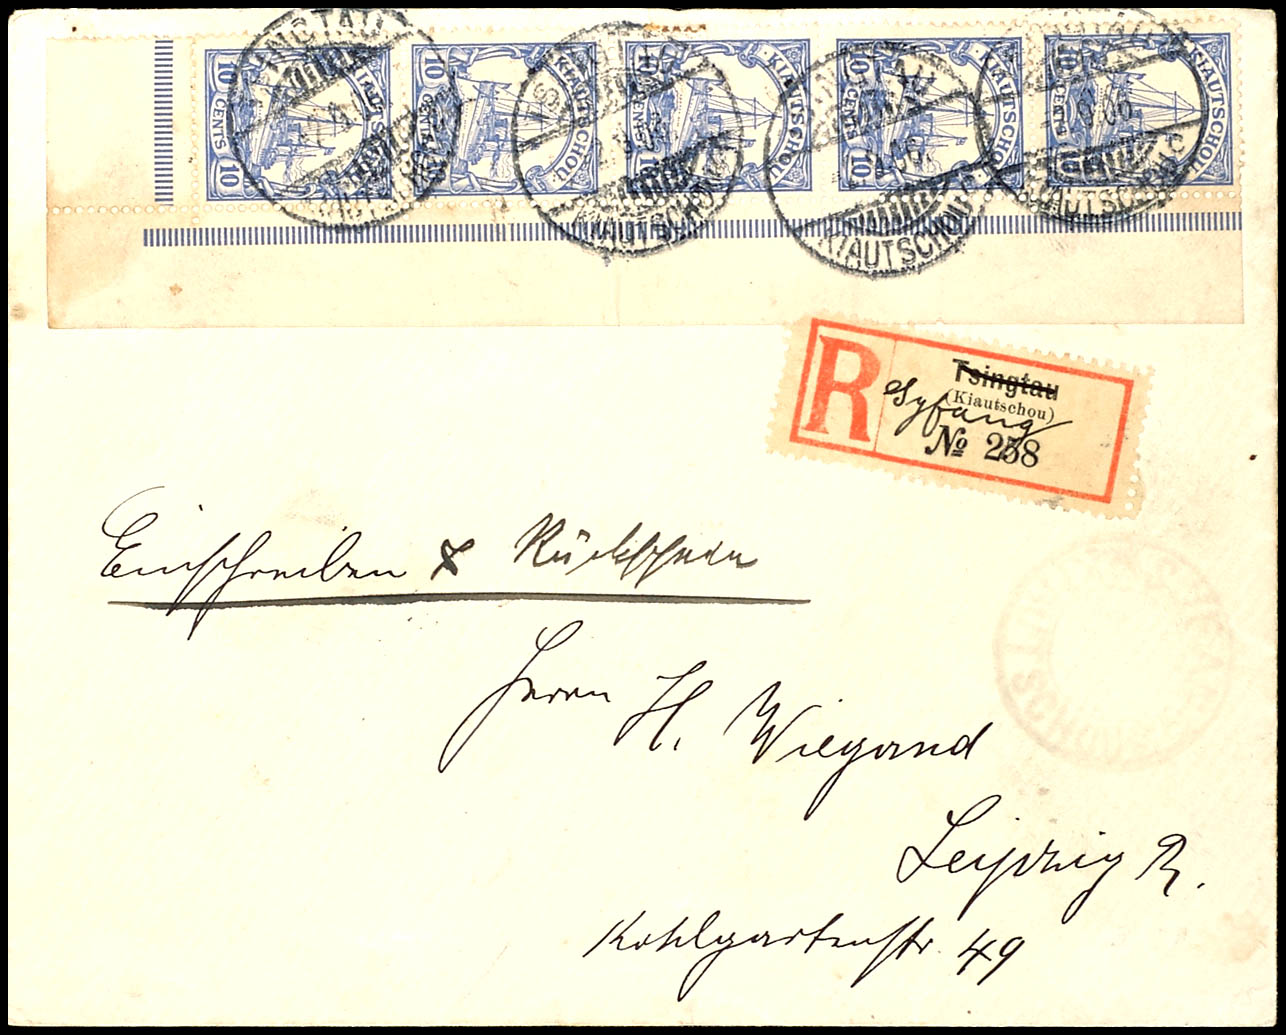 KIAUTSCHOU
10 CENTS 10
KIAUTSCHOU
10 CENTS 10
KIAUTSCHOU
10 CENTS 10
KIAUTSCHOU
10 CENTS 10
KIAUTSCHOU
10 CENTS 10
TSINGTAU
KIAUTSCHOU
TSINGTAU
KIAUTSCHOU
TSINGTAU
KIAUTSCHOU
TSINGTAU
KIAUTSCHOU
R
Tsingtau
(Kiautschou)
Syfang
№ 258
Einschreiben & Rückschein
Herrn H. Wiegand
Leipzig R.
Kohlgartenstr. 49